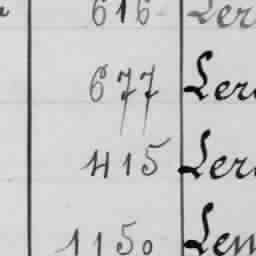 616 Ler
677 Ler
415 Ler
1150 Lem